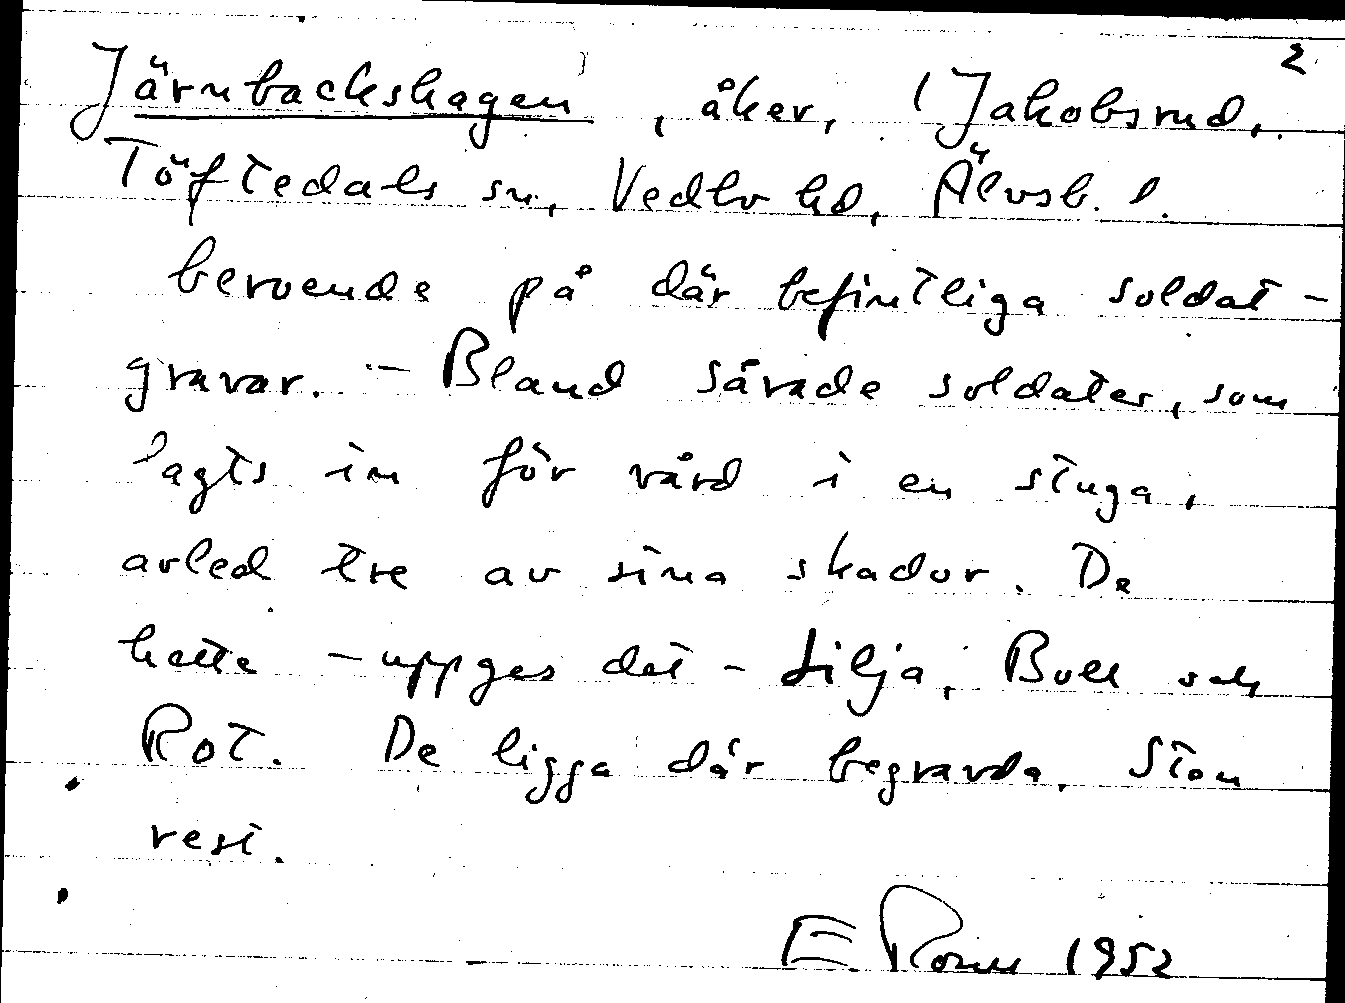 2
Järnbackshagen, åker, 1 Jakobsrud,
Töftedals sn, Vedbo hd, Älvsb. l.
beroende på där befintliga soldat-
gravar. - Bland sårade soldater, som
lagts in för vård i en stuga,
avled tre av sina skador. De
hette - uppges det - Lilja, Boll och
Rot. De ligga där begravda. Sten
rest.
E. 1952